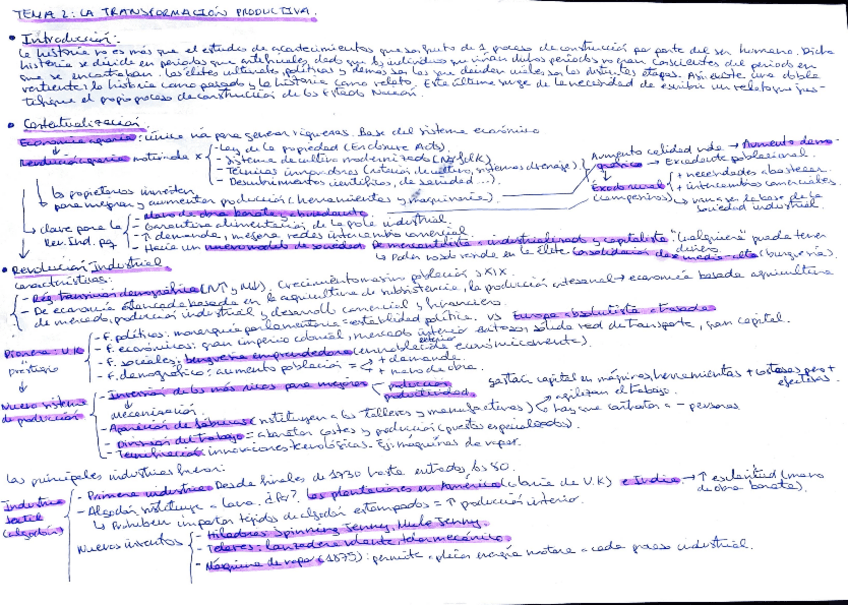 TEMA 2: LA TRANSFORMACIÓN PRODUCTIVA.
• Introducción:
La historia no es más que el estudio de acontecimientos que son fruto de 1 proceso de construcción por parte del ser humano. Dicha
historia se divide en periodos que artificiales, dado que los individuos que vivían dichos periodos no eran conscientes del periodo en
que se encontraban. Las élites culturales, políticas y demás son las que deciden cuáles son las distintas etapas. Así existe una doble
vertiente: la historia como pasado y la historia como relato. Este último surge de la necesidad de escribir un relato que jus-
tifique el propio proceso de construcción de los Estado Nación.
• Contextualización
Economía agraria: única vía para generar riquezas. Base del sistema económico
Revolución agraria motivada x
- Ley de la propiedad (Enclosure Acts)
- Sistema de cultivo modernizado (Norfolk)
- Técnicas innovadoras (rotación de cultivo, sistemas drenaje)
- Descubrimientos científicos, de sanidad...)
Aumento calidad vida → Aumento demo-
gráfico → Excedente poblacional.
Éxodo rural (campesinos)
+ necesidades abastecer.
+ intercambios comerciales.
↳ van a ser la base de la
sociedad industrial.
los propietarios invierten
para mejorar y aumentar producción (herramientas y maquinaria).
↳ clave para la Rev. Ind. pq
- Mano de obra barata y abundante
- Garantiza alimentación de la pobl. industrial.
- ↑ demanda, mejora redes intercambio comercial.
- Hacia un nuevo modelo de sociedad. De mercantilista a industrializada y capitalista "cualquiera" puede tener
dinero
↳ Poder no solo reside en la élite. Consolidación de media-alta (burguesía).
• Revolución Industrial
Características:
- Rég. transición demográfica (↓NT y MV). Crecimiento masivo población s.XIX.
- De economía estancada basada en la agricultura de subsistencia, la producción artesanal → economía basada agricultura
de mercado, producción industrial y desarrollo comercial y financiero.
Pionera: U.K
prestigio
- F. políticos: monarquía parlamentaria = estabilidad política. vs Europa absolutista atrasada
- F. económicas: gran imperio colonial, mercado interior extenso: sólida red de transporte, gran capital.
exterior
- F. sociales: burguesía emprendedora (ennoblecida económicamente).
- F. demográfico: aumento población =
+ demanda.
+ mano de obra.
Nuevo sistema
de producción
- Inversión de los más ricos para mejorar
producción
productividad
gastan capital en máquinas, herramientas + costosas pero +
efectivas.
mecanización
↗ agilizan el trabajo.
- Aparición de fábricas (sustituyen a los talleres y manufacturas) ↳ hay que contratar a - personas
- División del trabajo = abaratar costes y producción (puestos especializados).
- Tecnificación: innovaciones tecnológicas. Ej: máquinas de vapor.
Las principales industrias fueron:
Industria
textil
(algodón)
- Primera industria. Desde finales de 1730 hasta entrados los 80.
- Algodón sustituye a lana. ¿Pq? Las plantaciones en América (colonia de U.K) e India → ↑ esclavitud (mano
de obra barata).
↳ Prohíben importar tejidos de algodón estampados = ↑ producción interior.
Nuevos inventos
- Hiladoras: Spinning Jenny, Mule Jenny.
- Telares: lanzadera volante, telar mecánico
- Máquina de vapor (1875): permite aplicar energía motora a cada proceso industrial.